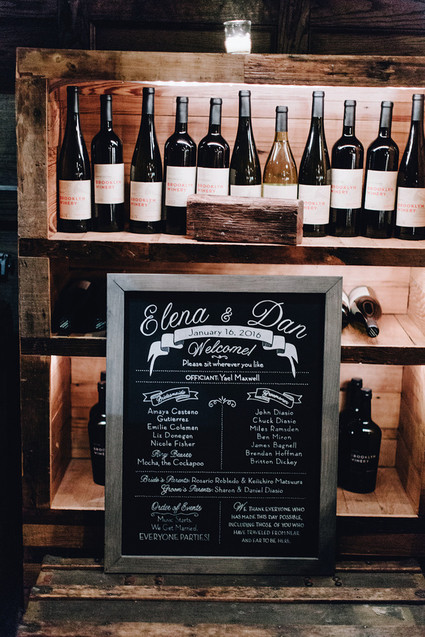 BROOKLYN
WINERY
BROOKLYN
WINERY
BROOKLYN
WINERY
BROOKLYN
WINERY
BROOKLYN
WINERY
BROOKLYN
WINERY
BROOKLYN
WINERY
Elena & Dan
January 16, 2016
Welcome!
Please sit wherever you like
OFFICIANT: Yael Maxwell
Bridesmaids
Amaya Casteno
Gutierres
Emilie Coleman
Liz Donegan
Nicole Fisher
Mocha, the Cockapoo
Groomsmen
John Diasio
Chuck Diasio
Miles Ramsden
Ben Miron
James Bagnell
Brendan Hoffman
Britton Dickey
Bride's Parents: Rosario Robledo & Keiichiro Matsuura
Groom's Parents: Sharon & Daniel Diasio
Order of Events
Music Starts,
We Get Married,
EVERYONE PARTIES!
We thank everyone who
has made this day possible,
including those of you who
have traveled from near
and far to be here.